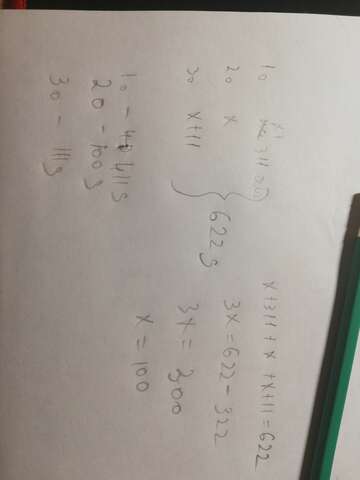 10 x+311
20 x
30 x+11
622 g
x+311+x+x+11=622
3x=622-322
3x=300
x=100
10 - 411 g
20 - 100 g
30 - 111 g